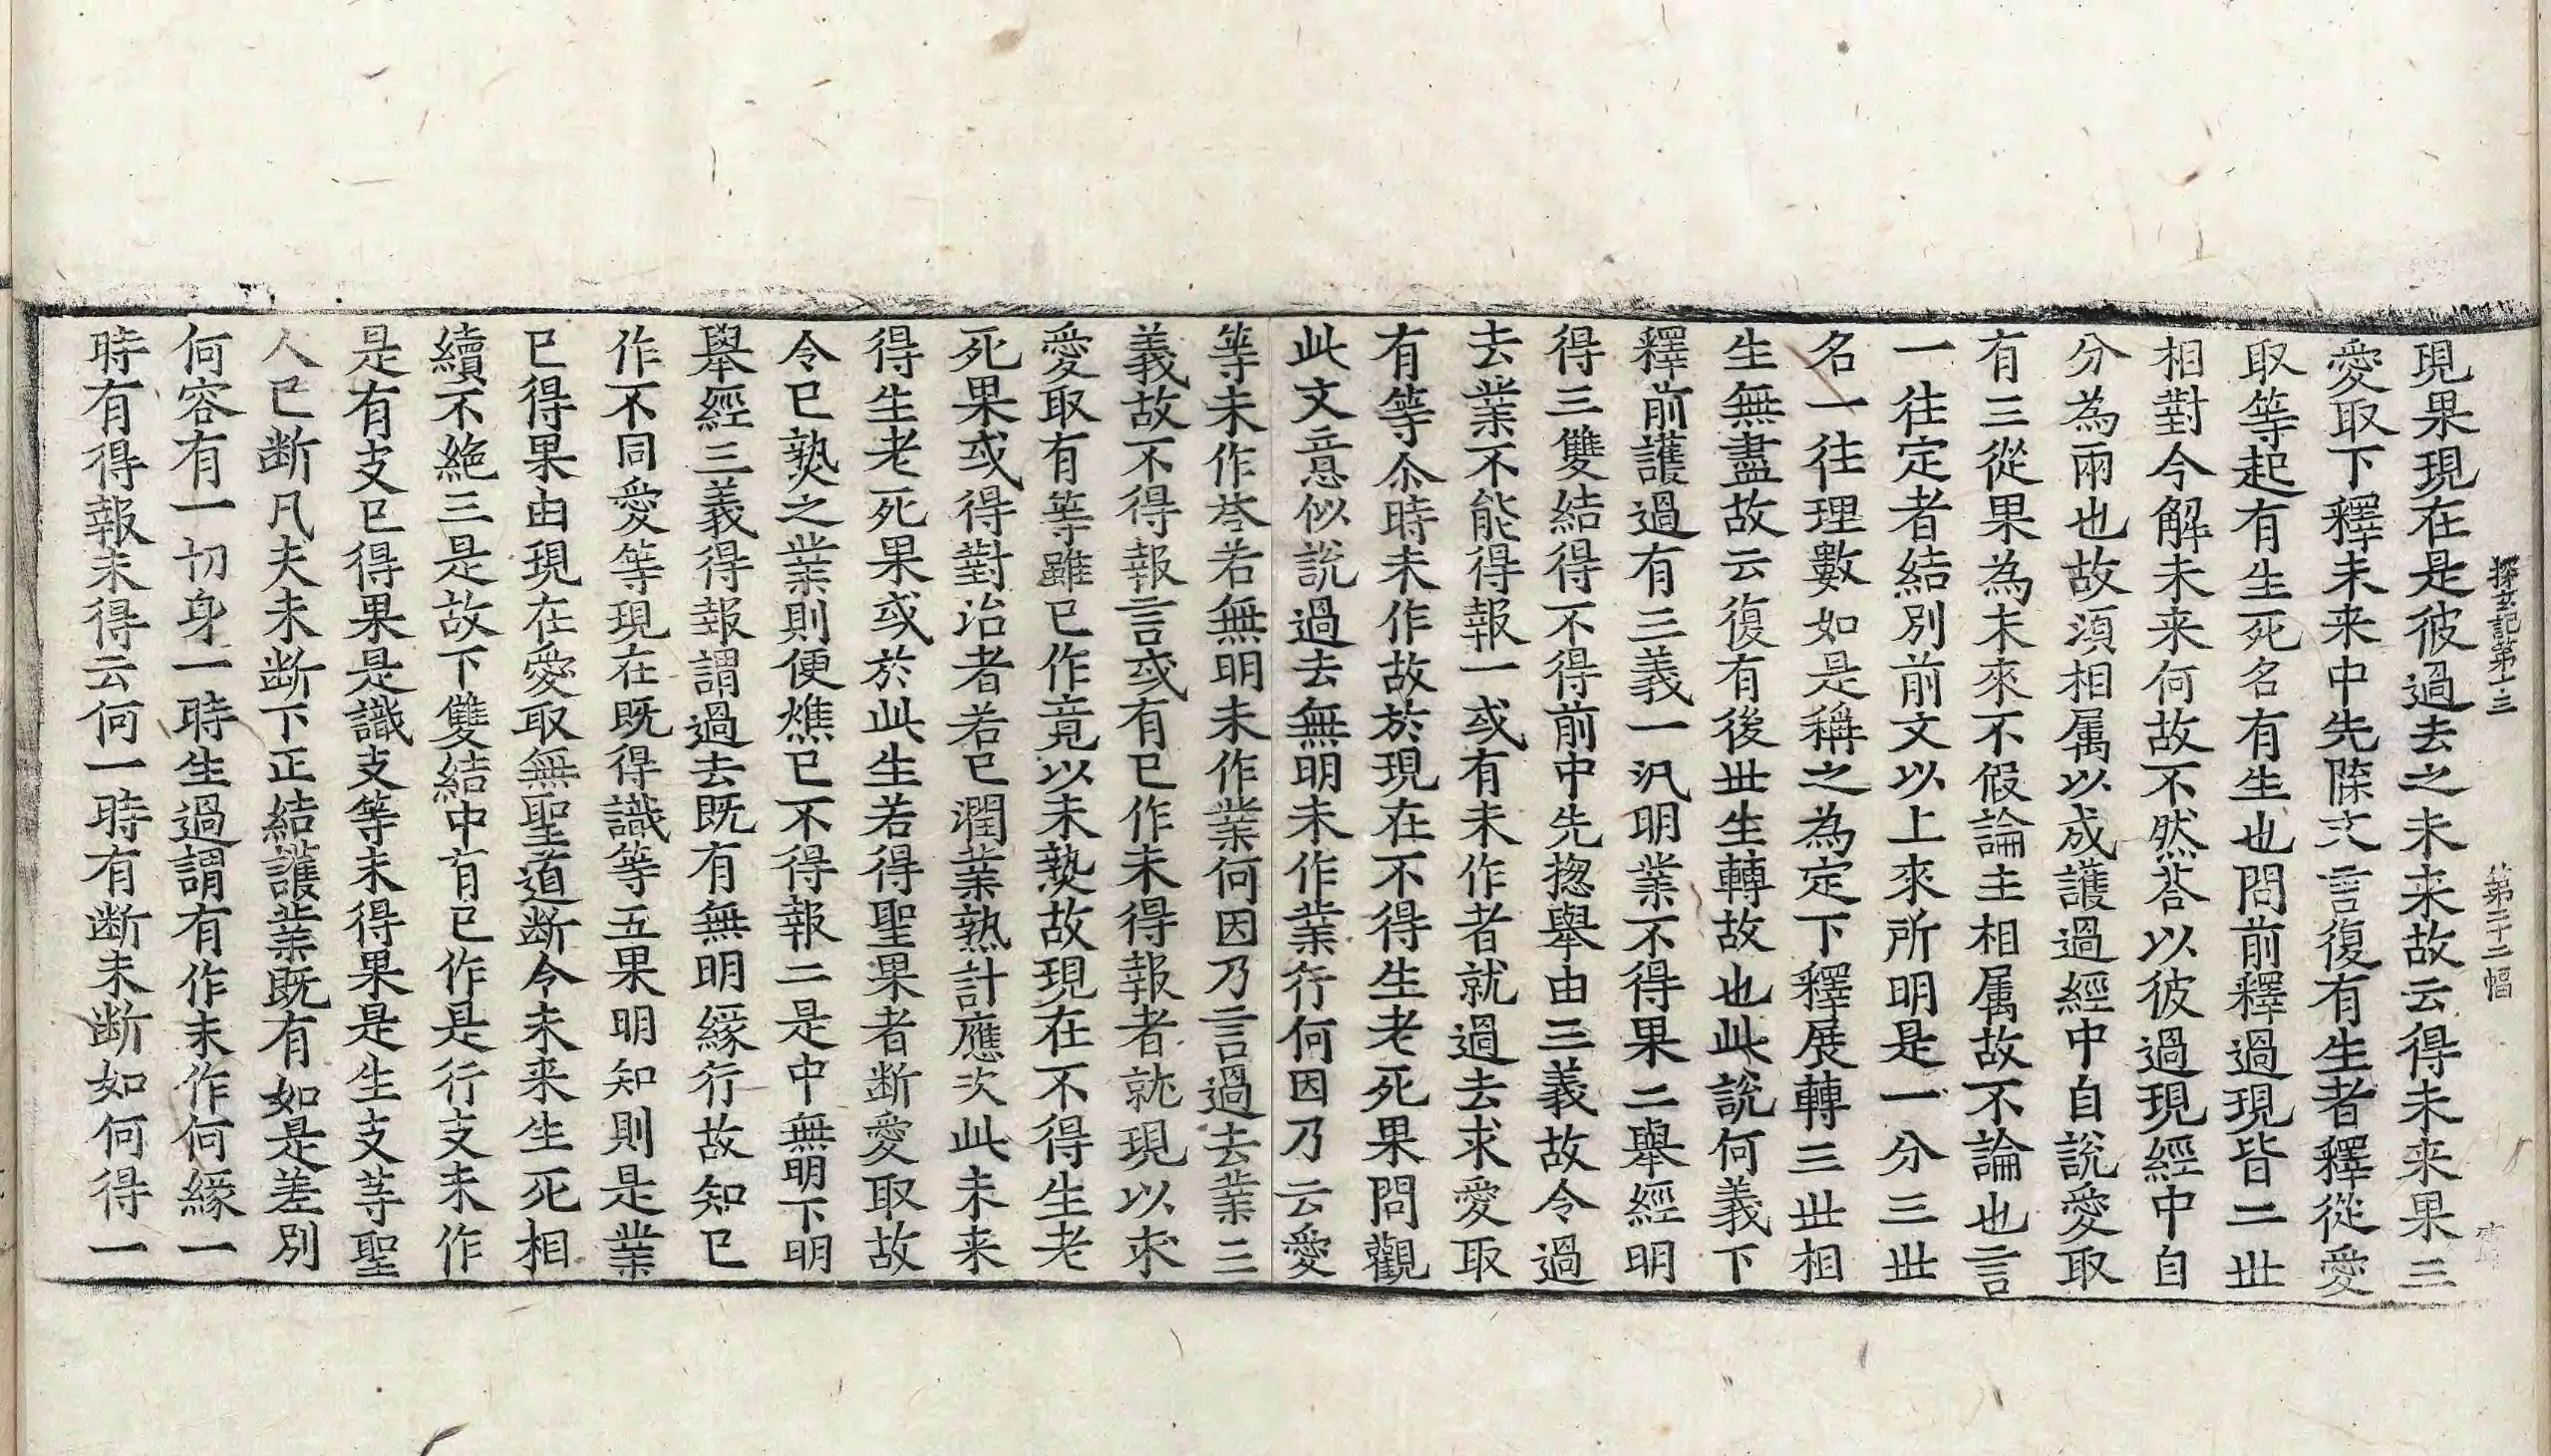 探玄記第十三　第二十二幅
現果現在是彼過去之未来故云得未来果三
愛取下釋未来中先牒文言復有生者釋從愛
取等起有生死名有生也問前釋過現皆二世
相對今解未来何故不然荅以彼過現經中自
分為兩也故湏相属以成護過經中自說愛取
有三從果為末來不假論主相属故不論也言
一往定者結別前文以上來所明是一分三世
名一往理數如是稱之為定下釋展轉三世相
生無盡故云復有後世生轉故也此說何義下
釋前護過有三義一汎明業不得果二舉經明
得三雙結得不得前中先揔舉由三義故令過
去業不能得報一或有未作者就過去求愛取
有等尒時未作故於現在不得生老死果問觀
此文意似說過去無明未作業行何因乃云愛
等未作荅若無明未作業何因乃言過去業三
義故不得報言或有已作未得報者就現以求
愛取有等雖已作竟以未熟故現在不得生老
死果或得對治者若已潤業熟計應次此未来
得生老死果或於此生若得聖果者断愛取故
令已熟之業則便燋已不得報二是中無明下明
舉經三義得報謂過去既有無明緣行故知已
作不同愛等現在既得識等五果明知則是業
已得果由現在愛取無聖道断令未来生死相
續不絶三是故下雙結中有已作是行支未作
是有支已得果是識支等未得果是生支等聖
人已断凡夫未断下正結護業既有如是差別
何容有一切身一時生過謂有作未作何緣一
時有得報未得云何一時有断未断如何得一